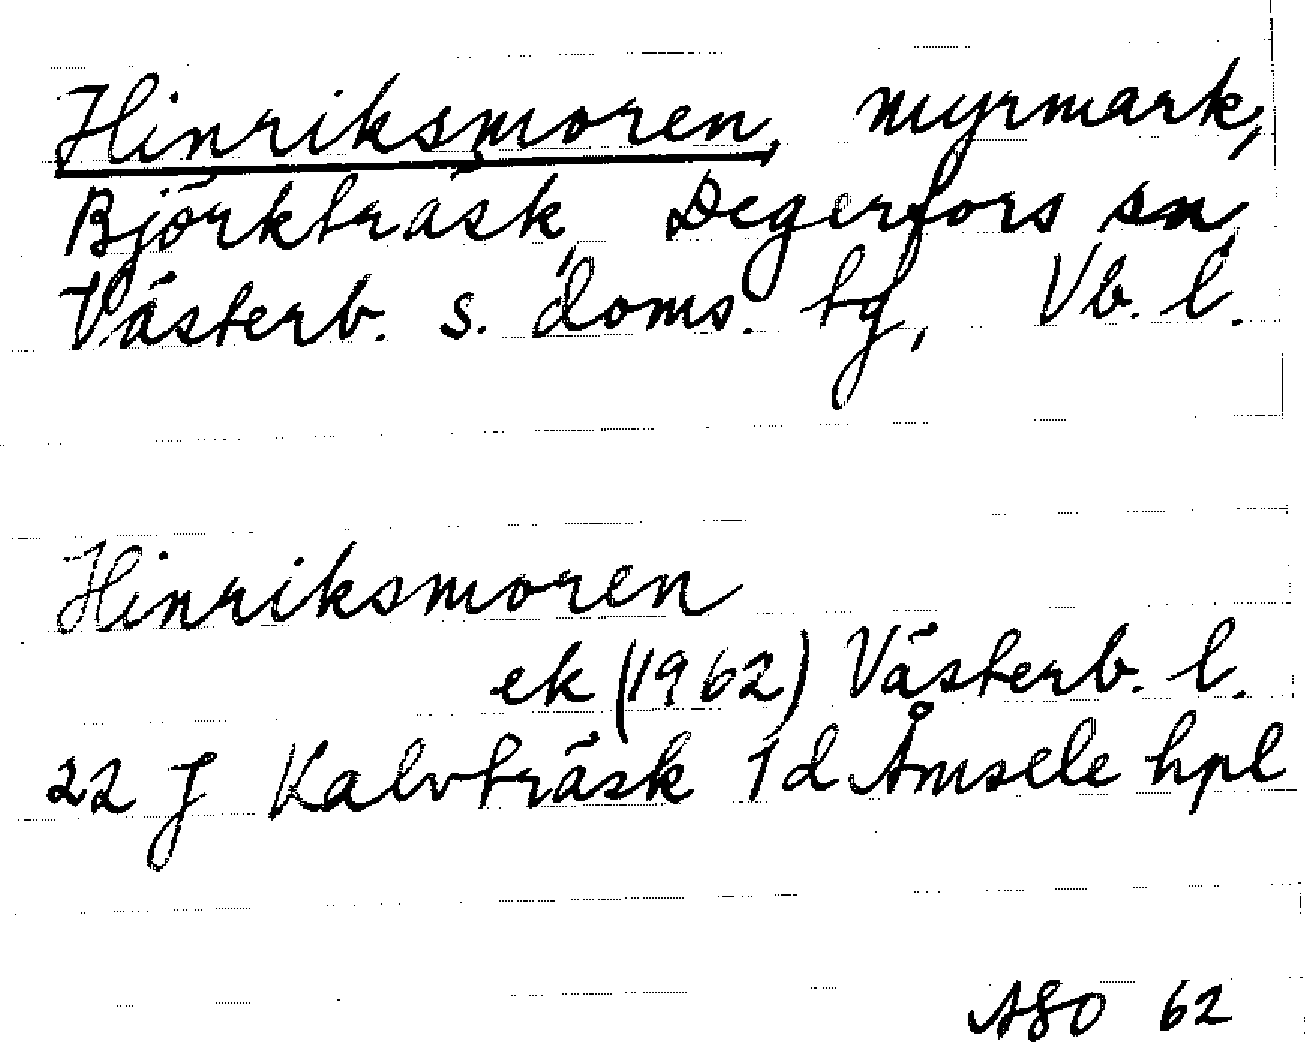 Hinriksmoren, myrmark,
Björkträsk, Degerfors sn,
Västerb. s. doms. tg, Vb. l.
Hinriksmoren
ek (1962) Västerb. l.
22 J Kalvträsk 1d Åmsele hpl
62